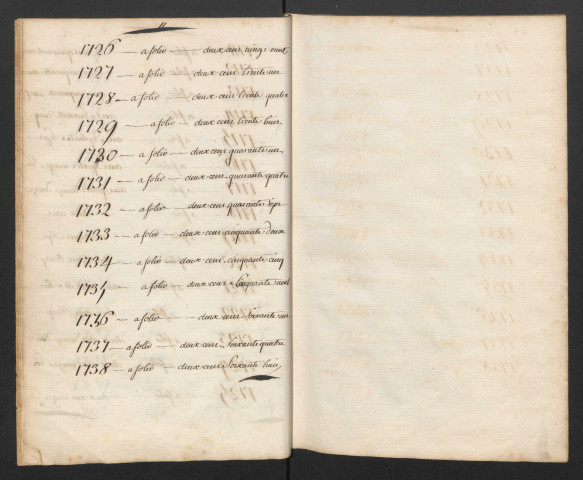 1726 — a folio — deux cens vingt neuf
1727 — a folio — deux cens trente un
1728 — a folio — deux cens trente quatre
1729 — a folio — deux cens trente huit
1730 — a folio — deux cens quarante un
1731 — a folio — deux cens quarante quatre
1732 — a folio — deux cens quarante sept
1733 — a folio — deux cens cinquante deux
1734 — a folio — deux cens cinquante cinq
1735 — a folio — deux cens cinquante neuf
1736 — a folio — deux cens soixante un
1737 — a folio — deux cens soixante quatre
1738 — a folio — deux cens Soixante huit